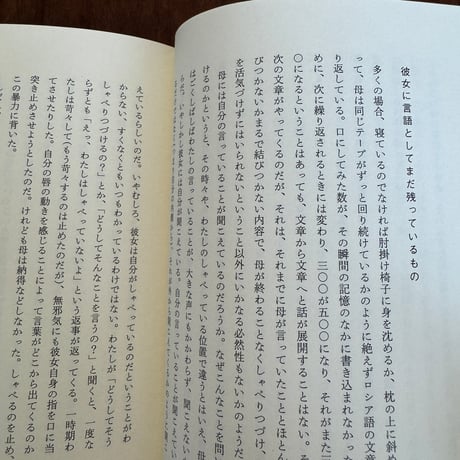 彼女に言語としてまだ残っているもの
多くの場合、寝ているのでなければ肘掛け椅子に身を沈めるか、枕の上に斜め
って、母は同じテープがずっと回り続けているかのように絶えずロシア語の文章
り返している。口にしてみた数が、その瞬間の記憶のなかに書き込まれなかった
めに、次に繰り返されるときには変わり、三〇〇が五〇〇になり、それがまた三
〇になるということはあっても、文章から文章へと話が展開することはない。そ
次の文章がやってくるのだが、それは、それまでに母が言っていたこととほとん
びつかないかまるで結びつかない内容で、母が終わることなくしゃべりつづけ、
を活気づけずにはいられないということ以外にいかなる必然性もないかのようだ
母には自分の言っていることが聞こえているのだろうか。なぜこんなことを問い
けるのかというと、その時々や、わたしのしゃべっている位置で違うとはいえ、母
はごくしばしばわたしの言っていることが、大きな声にもかかわらず、聞こえない
えているらしいのだ。いやむしろ、彼女は自分がしゃべっているのだということがわ
からない、すくなくともいつもわかっているわけではない。わたしが「どうしてそう
しゃべりつづけるの？」とか、「どうしてそんなことを言うの？」と聞くと、一度な
らずとも「えっ、わたしはしゃべっていないよ」という返事が返ってくる。一時期わ
たしは苛々して（もう苛々するのは止めたのだが）、無邪気にも彼女自身の指を口に当
てさせたりした。自分の唇の動きを感じることによって言葉がどこから出てくるのか
突き止めさせようとしたのだ。けれども母は納得などしなかった。しゃべるのを止め、
この暴力に背いた。